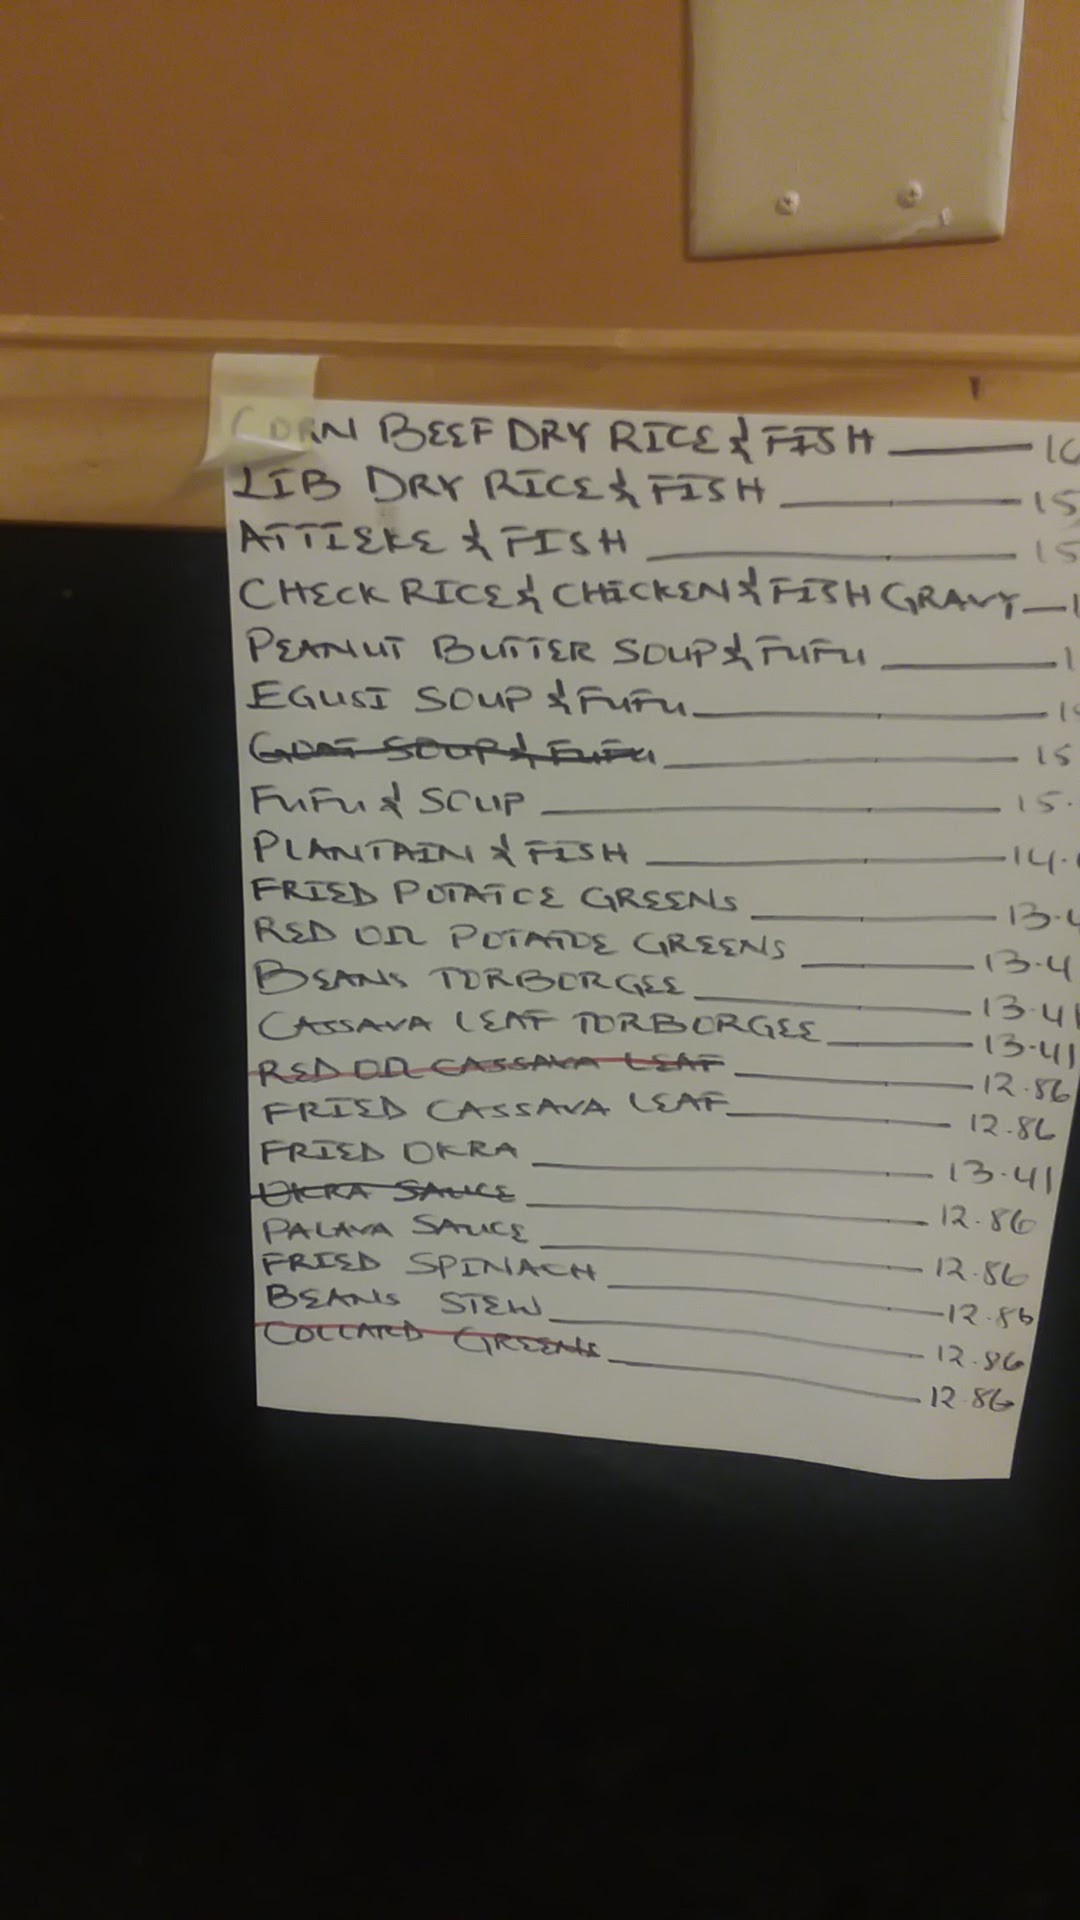 CORN BEEF DRY RICE & FISH
LIB DRY RICE & FISH 15
ATTIEKE & FISH 15
CHECK RICE & CHICKEN & FISH GRAVY
PEANUT BUTTER SOUP & FUFU
EGUSI SOUP & FUFU
GOAT SOUP & FUFU 15
FUFU & SOUP 15.
PLANTAIN & FISH 14.
FRIED POTATOE GREENS 13.4
RED OIL POTATOE GREENS 13.41
BEANS TORBORGEE 13.41
CASSAVA LEAF TORBORGEE 13.41
RED OIL CASSAVA LEAF 12.86
FRIED CASSAVA LEAF 12.86
FRIED OKRA 13.41
OKRA SAUCE 12.86
PALAVA SAUCE 12.86
FRIED SPINACH 12.86
BEANS STEW 12.86
COLLARD GREENS 12.86